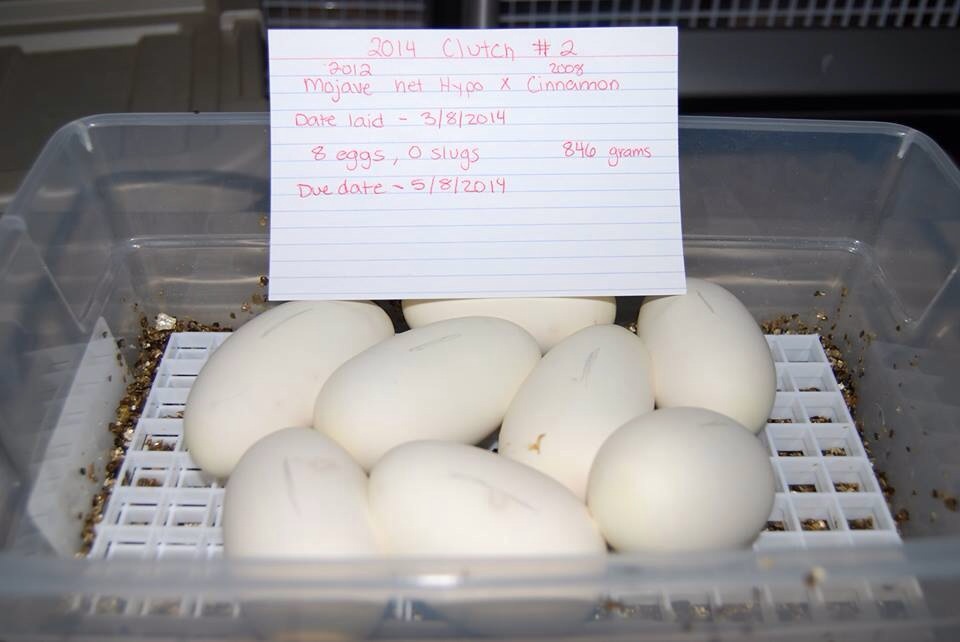 2014 Clutch #2
2012 2008
Mojave het Hypo x Cinnamon
Date laid - 3/8/2014
8 eggs, 0 slugs 846 grams
Due date - 5/8/2014